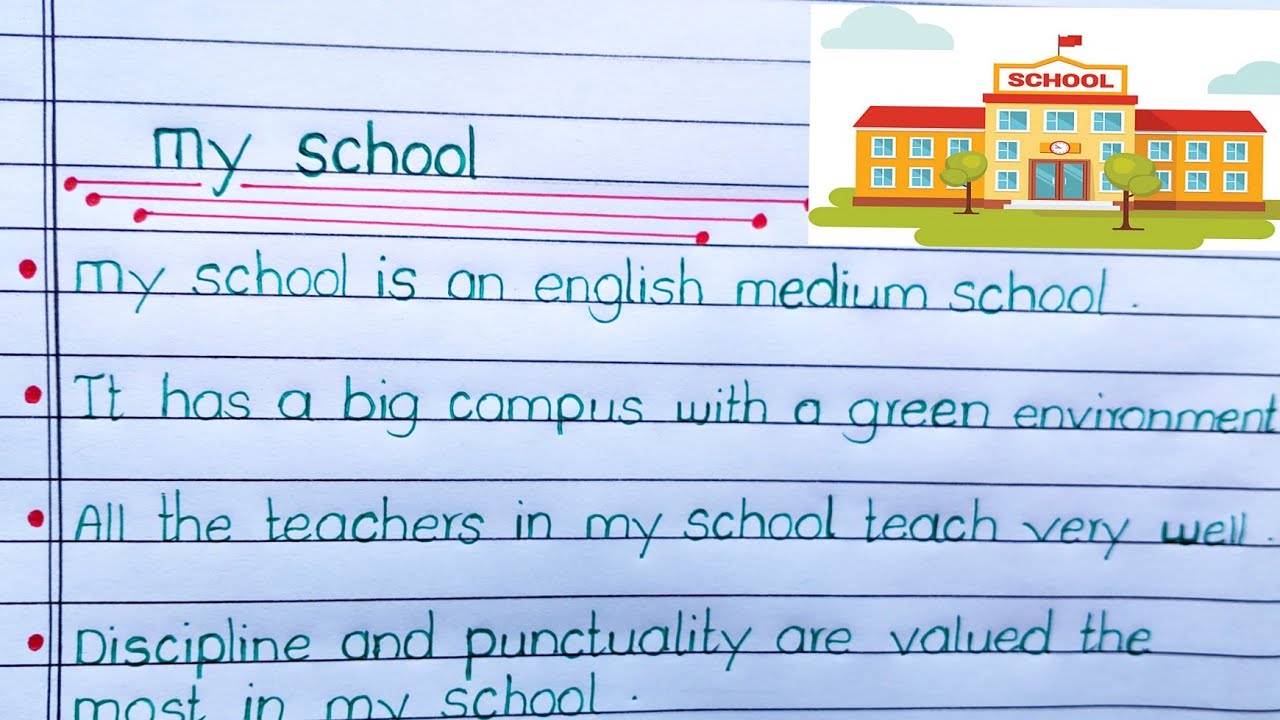 SCHOOL
My school
My school is an english medium school.
It has a big campus with a green environment
All the teachers in my school teach very well.
Discipline and punctuality are valued the
most in my school.